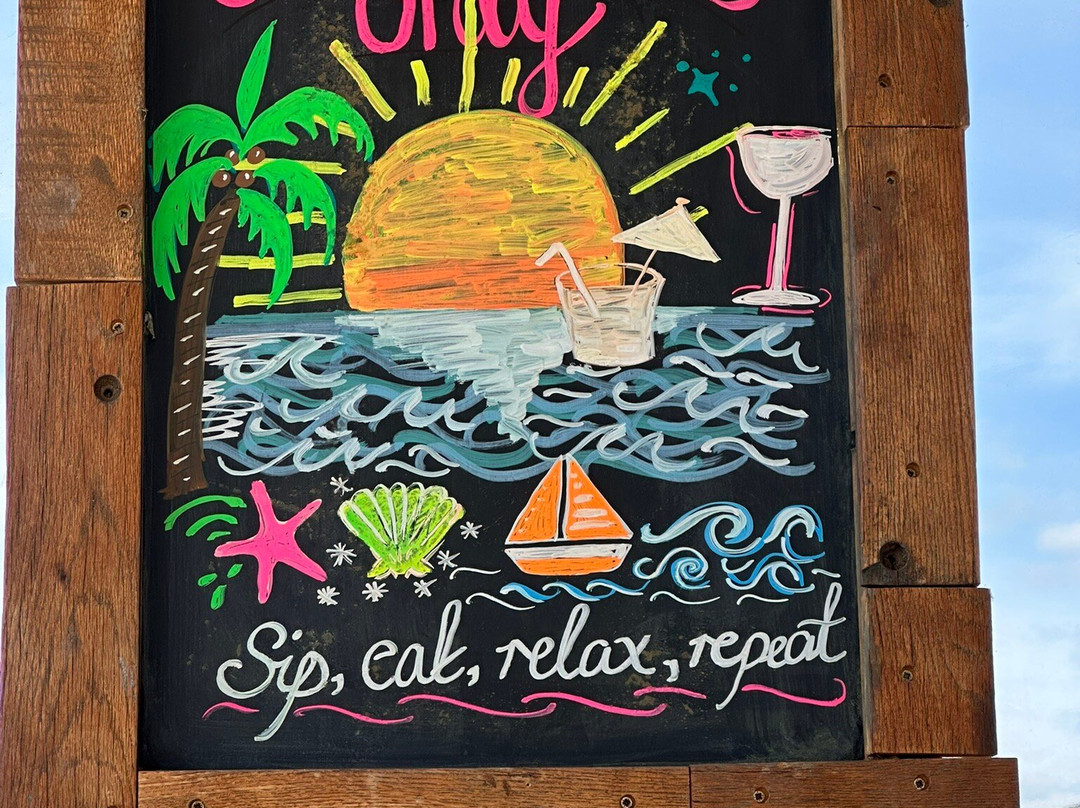 only
Sip, eat, relax, repeat